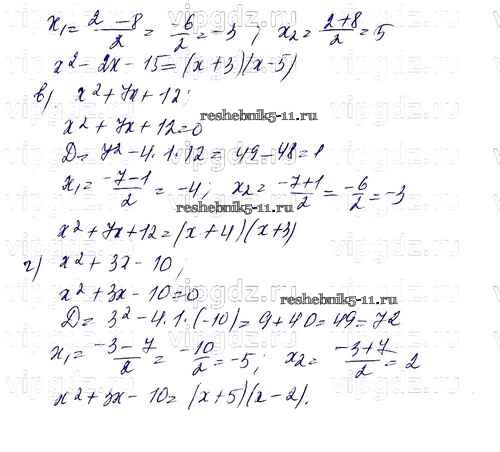 x₁ = (2 - 8)/2 = -6/2 = -3 ; x₂ = (2+8)/2 = 5
x² - 2x - 15 = (x+3)(x-5)
в) x² + 7x + 12;
reshebnik5-11.ru
x² + 7x + 12 = 0
D = 7² - 4·1·12 = 49 - 48 = 1
x₁ = (-7-1)/2 = -4; x₂ = (-7+1)/2 = -6/2 = -3
reshebnik5-11.ru
x² + 7x + 12 = (x+4)(x+3)
г) x² + 3x - 10;
x² + 3x - 10 = 0
reshebnik5-11.ru
D = 3² - 4·1·(-10) = 9 + 40 = 49 = 7²
x₁ = (-3-7)/2 = -10/2 = -5; x₂ = (-3+7)/2 = 2
x² + 3x - 10 = (x+5)(x-2).